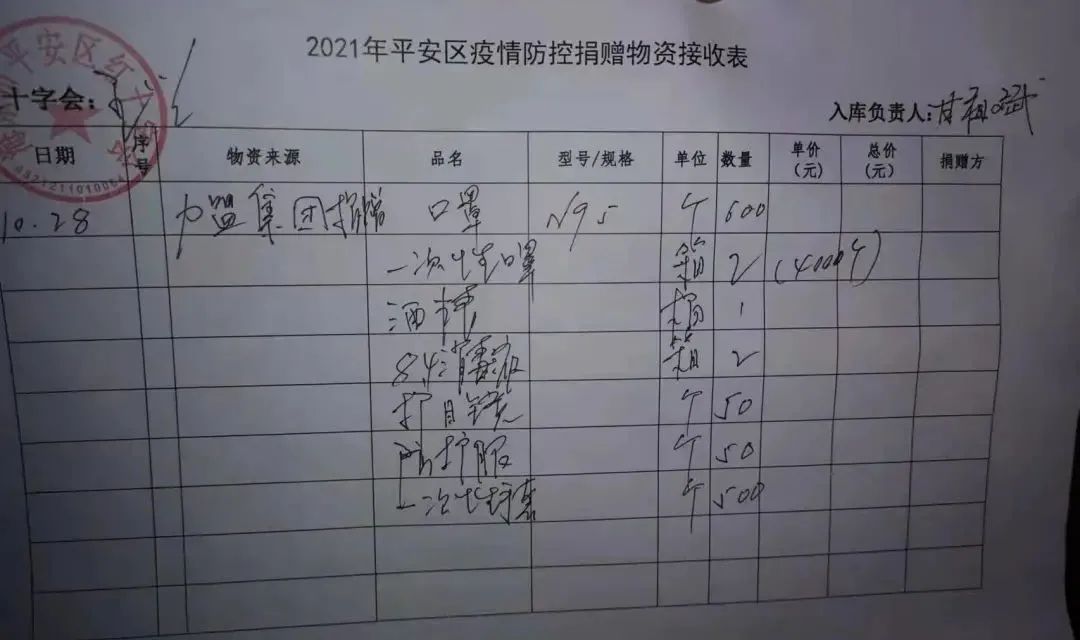 2021年平安区疫情防控捐赠物资接收表
十字会： 入库负责人：
日期 序号 物资来源 品名 型号/规格 单位 数量 单价（元） 总价（元） 捐赠方
10.28 力盟集团捐赠 口罩 N95 个 600
一次性口罩 箱 2 (4000个)
酒精 1
84消毒液 箱 2
护目镜 个 50
防护服 个 50
一次性手套 个 500
平安区红十